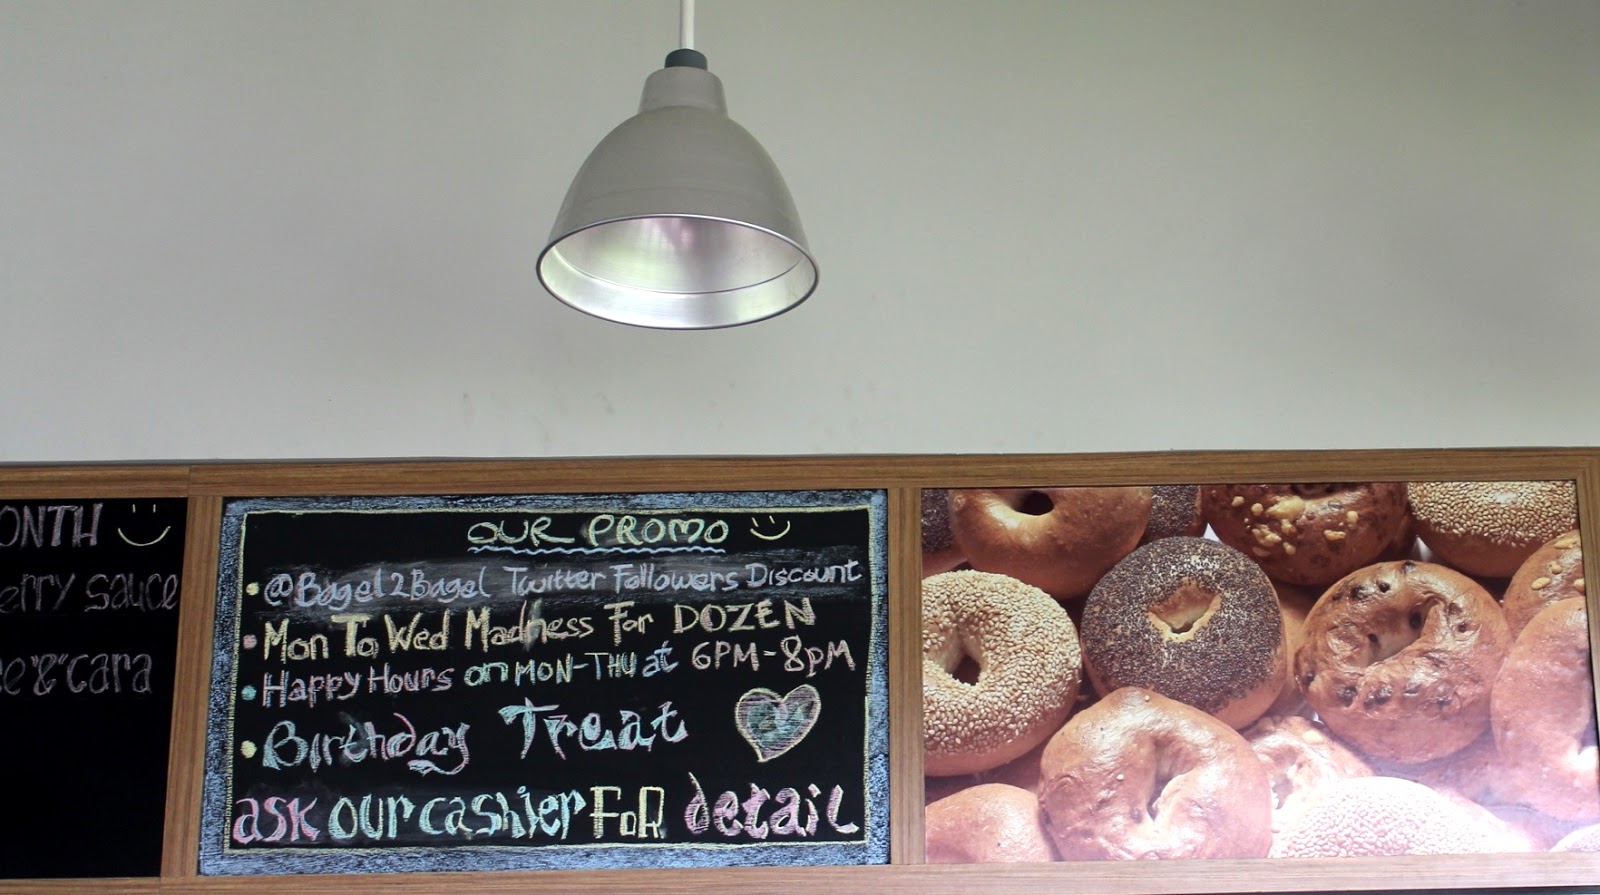 ONTH
erry sauce
e'&'cara
OUR PROMO
@Bagel2Bagel Twitter Followers Discount
Mon To Wed Madness For DOZEN
Happy Hours on MON-THU at 6PM-8pM
Birthday Treat
ask our cashier FoR detail